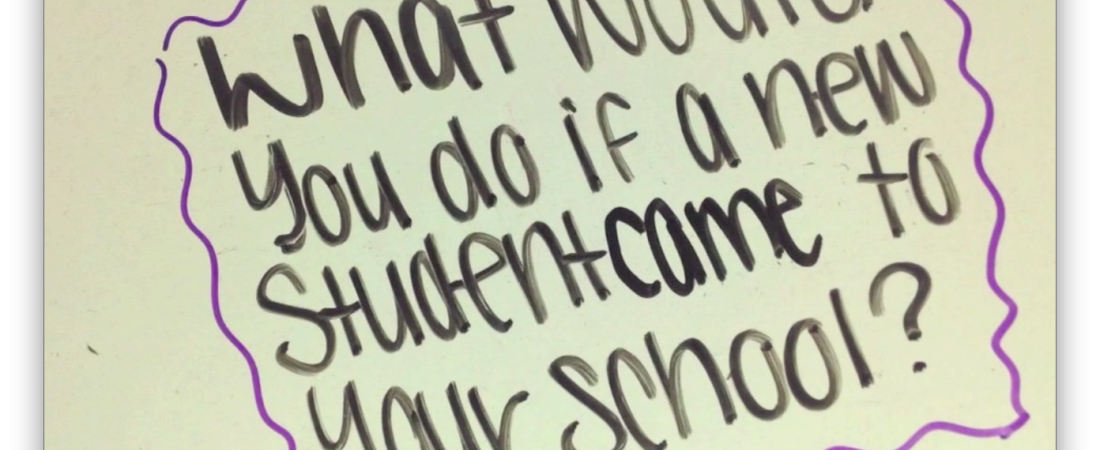 What would
you do if a new
student came to
your school?